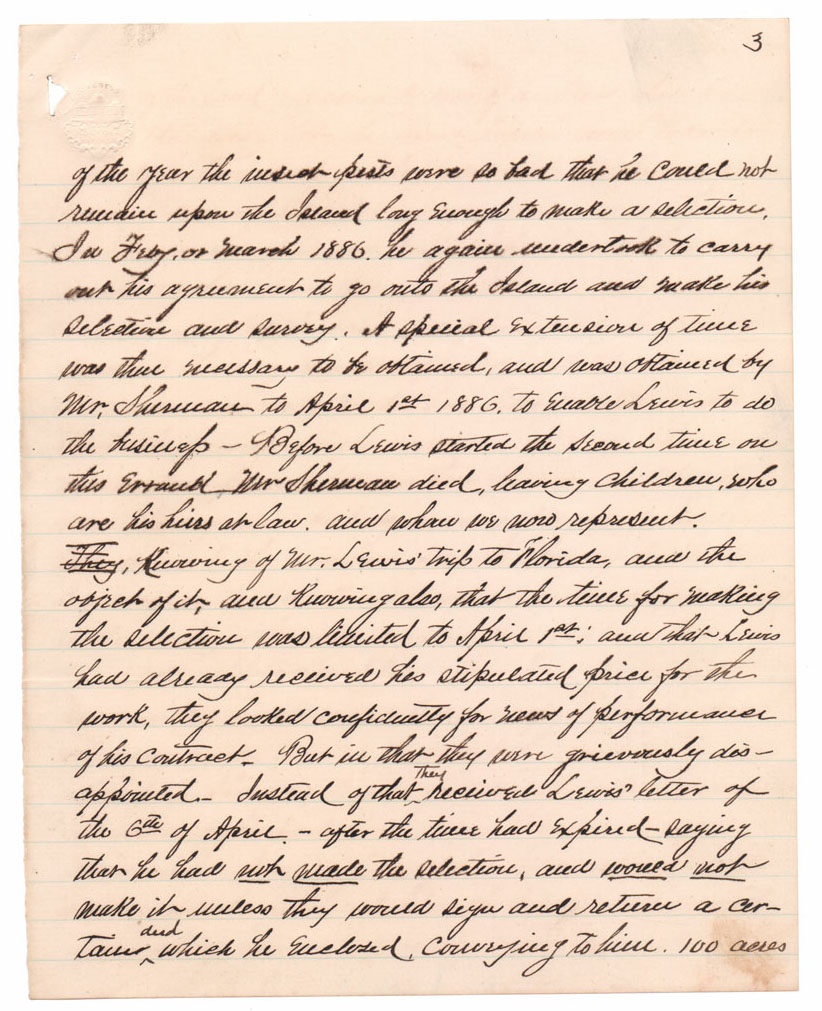 3
of the year the insect pests were so bad that he could not
remain upon the Island long enough to make a selection.
In Feby, or March 1886. he again undertook to carry
out his agreement to go onto the Island and make his
selection and survey. A special extension of time
was then necessary to be obtained, and was obtained by
Mr. Sherman to April 1st 1886. to enable Lewis to do
the business – Before Lewis started the second time on
this errand, Mr Sherman died, leaving children, who
are his heirs at law. and whom we now represent.
They, Knowing of Mr. Lewis' trip to Florida, and the
object of it, and knowing also, that the time for making
the selection was limited to April 1st; and that Lewis
had already received his stipulated price for the
work, they looked confidently for news of performance
of his contract. But in that they were grievously dis-
appointed. Instead of that they received Lewis' letter of
the 6th of April. – after the time had expired – saying
that he had not made the selection, and would not
make it unless they would sign and return a cer-
tain deed which he enclosed, conveying to him. 100 acres